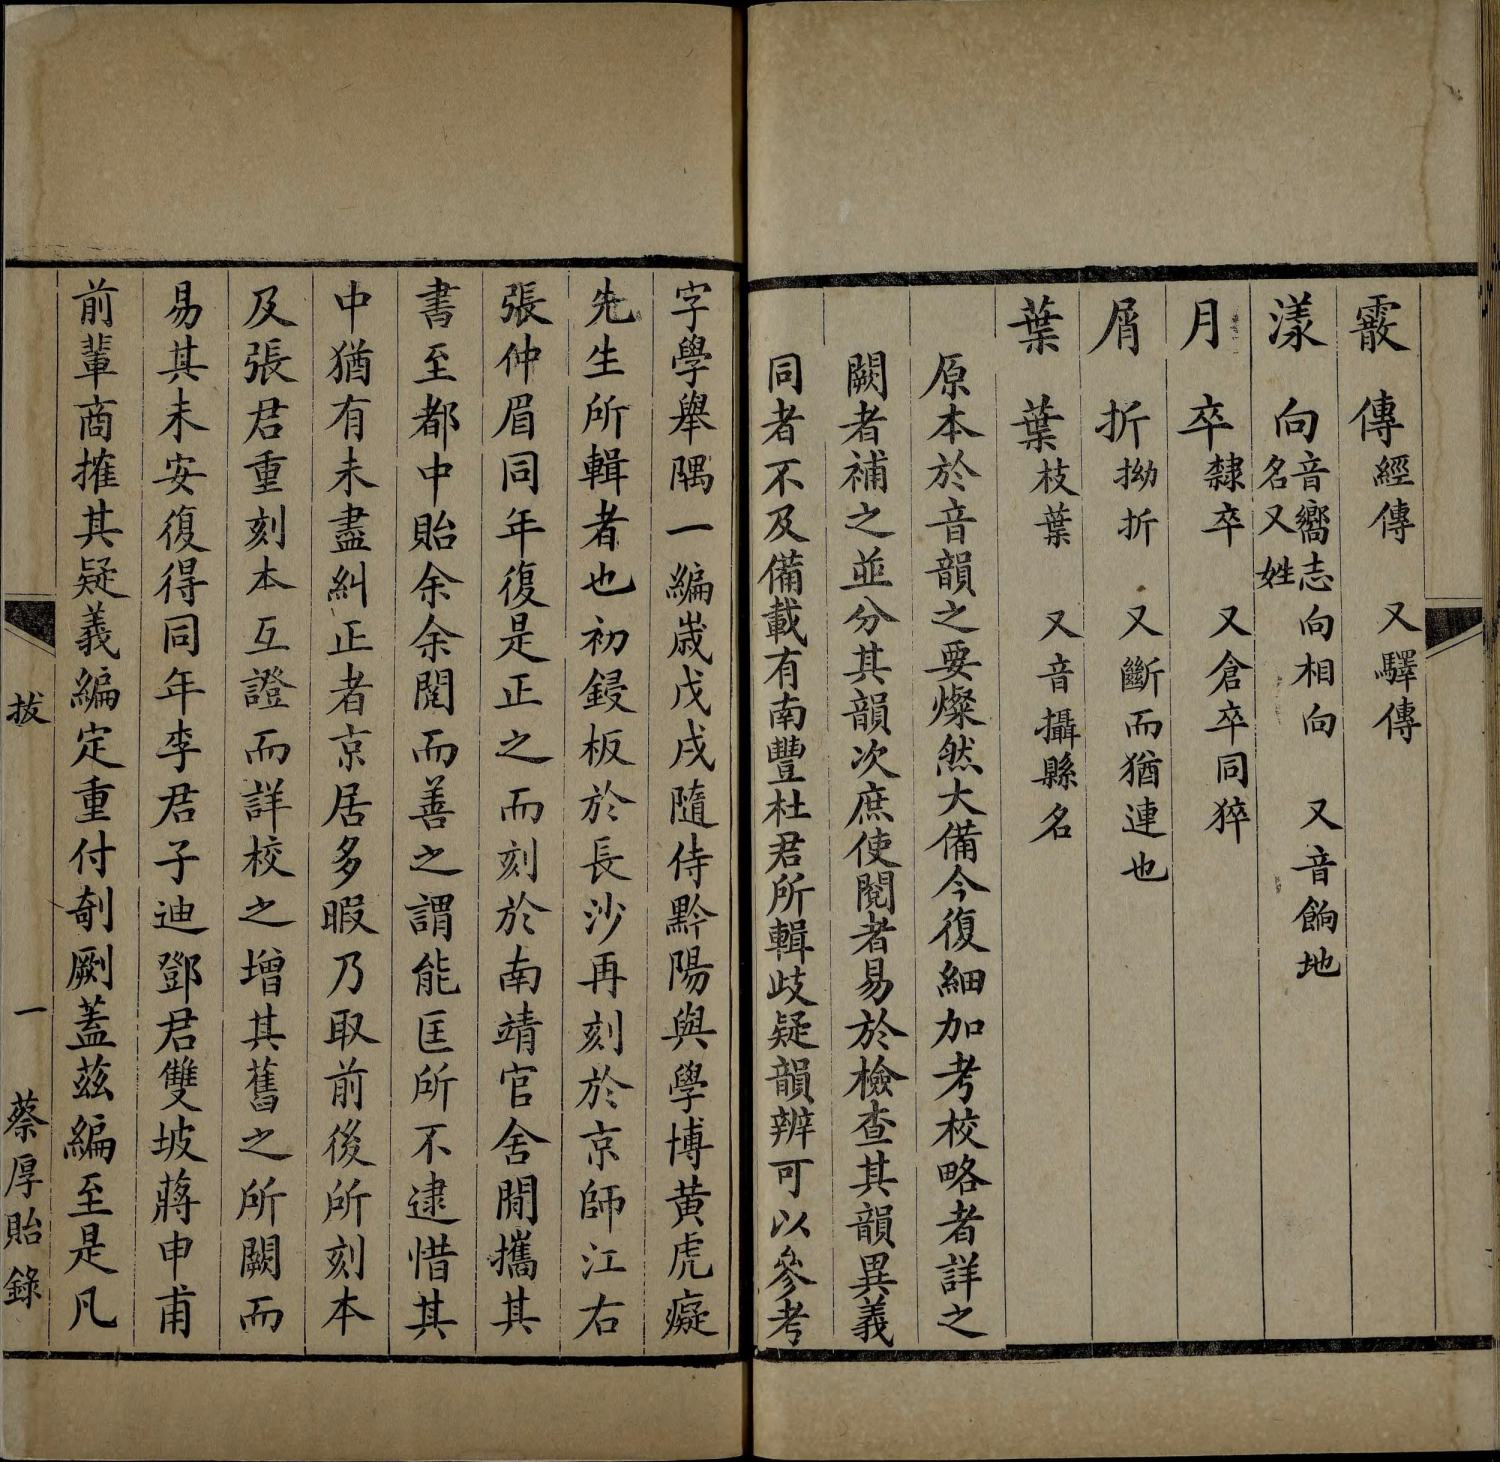 霰　傳經傳　又驛傳
漾　向音嚮志向相向　又音餉地
名又姓
月　卒隸卒　又倉卒同猝
屑　折拗折　又斷而猶連也
葉　葉枝葉　又音攝縣名
原本於音韻之要燦然大備今復細加考校略者詳之
闕者補之並分其韻次庶使閱者易於檢查其韻異義
同者不及備載有南豐杜君所輯歧疑韻辨可以參考
字學舉隅一編歲戊戌隨侍黔陽與學博黃虎癡
先生所輯者也初鋟板於長沙再刻於京師江右
張仲眉同年復是正之而刻於南靖官舍閒攜其
書至都中貽余余閱而善之謂能匡所不逮惜其
中猶有未盡糾正者京居多暇乃取前後所刻本
及張君重刻本互證而詳校之增其舊之所闕而
易其未安復得同年李君子迪鄧君雙坡蔣申甫
前輩商搉其疑義編定重付剞劂蓋茲編至是凡
拔　一　蔡厚貽錄